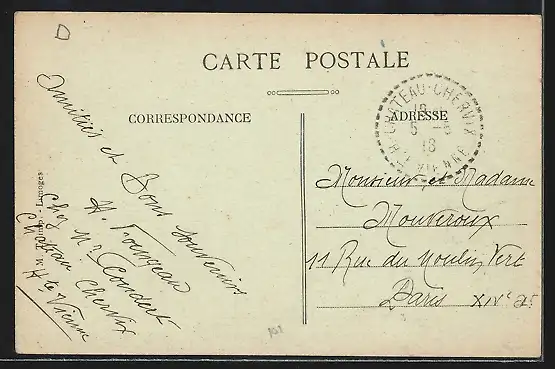 D
CARTE POSTALE
CORRESPONDANCE
ADRESSE
CHATEAU-CHERVIX
18
5 - 6
18
Hte VIENNE
Amitiés et
Bons souvenirs
H.
Chez Mr Coudert
Château Chervix
Hte Vienne
Limoges
Monsieur et Madame
Mouveroux
11 Rue du Moulin Vert
Paris XIVe